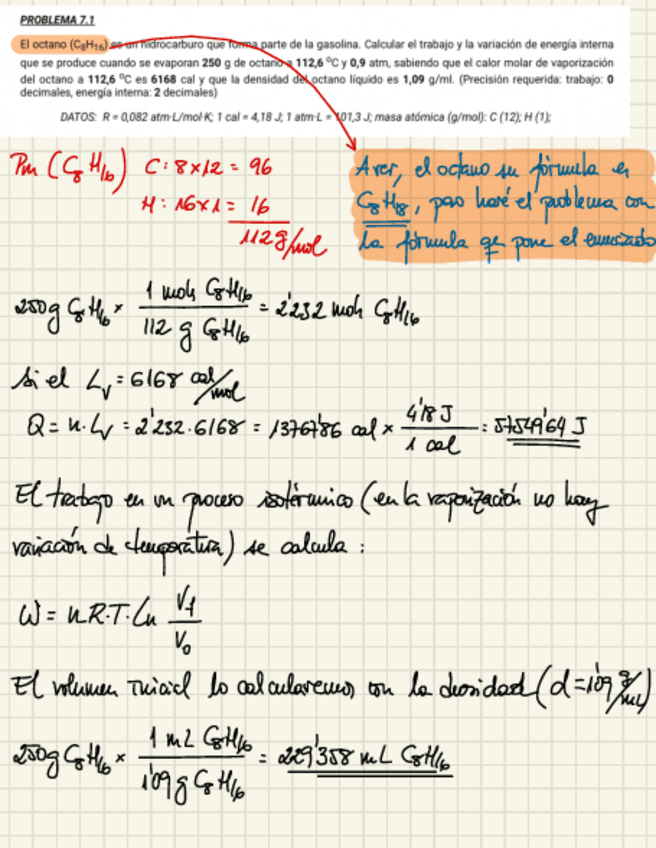 PROBLEMA 7.1
El octano (C8H16) es un hidrocarburo que forma parte de la gasolina. Calcular el trabajo y la variación de energía interna
que se produce cuando se evaporan 250 g de octano a 112,6 ºC y 0,9 atm, sabiendo que el calor molar de vaporización
del octano a 112,6 ºC es 6168 cal y que la densidad del octano líquido es 1,09 g/ml. (Precisión requerida: trabajo: 0
decimales, energía interna: 2 decimales)
DATOS: R = 0,082 atm·L/mol·K; 1 cal = 4,18 J; 1 atm·L = 101,3 J; masa atómica (g/mol): C (12); H (1);
Pm (C8H16) C: 8x12 = 96
H: 16x1 = 16
112 g/mol
A ver, el octano su fórmula es
C8H18, pero haré el problema con
la fórmula qe pone el enunciado
250g C8H16 x 1 mol C8H16 / 112 g C8H16 = 2'232 mol C8H16
Si el Lv = 6168 cal/mol
Q = n·Lv = 2'232·6168 = 13767'86 cal x 4'18 J / 1 cal = 57549'64 J
El trabajo en un proceso isotérmico (en la vaporización no hay
variación de temperatura) se calcula :
W = n.R.T. Ln Vf / V0
El volumen inicial lo calcularemos con la densidad (d = 1'09 g/mL)
250g C8H16 x 1 mL C8H16 / 1'09 g C8H16 = 229'358 mL C8H16